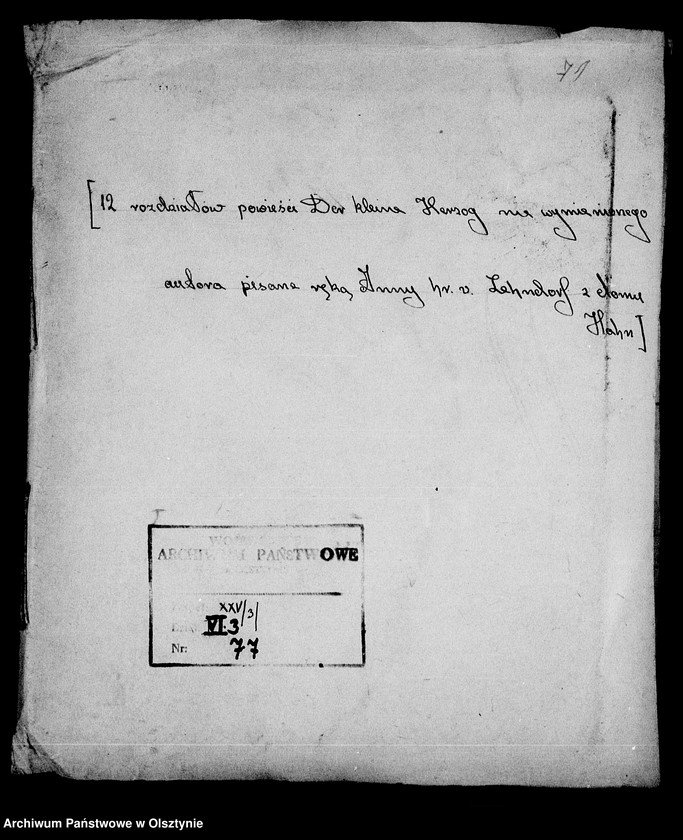 71
[12 rozdziałów powieści Der kleine Herzog nie wymienionego
autora pisane ręką Anny hr. v. Lehndorf z domu
Hahn]
ARCHIWUM PAŃSTWOWE
XXV/3/
VI.3
Nr: 77
Archiwum Państwowe w Olsztynie